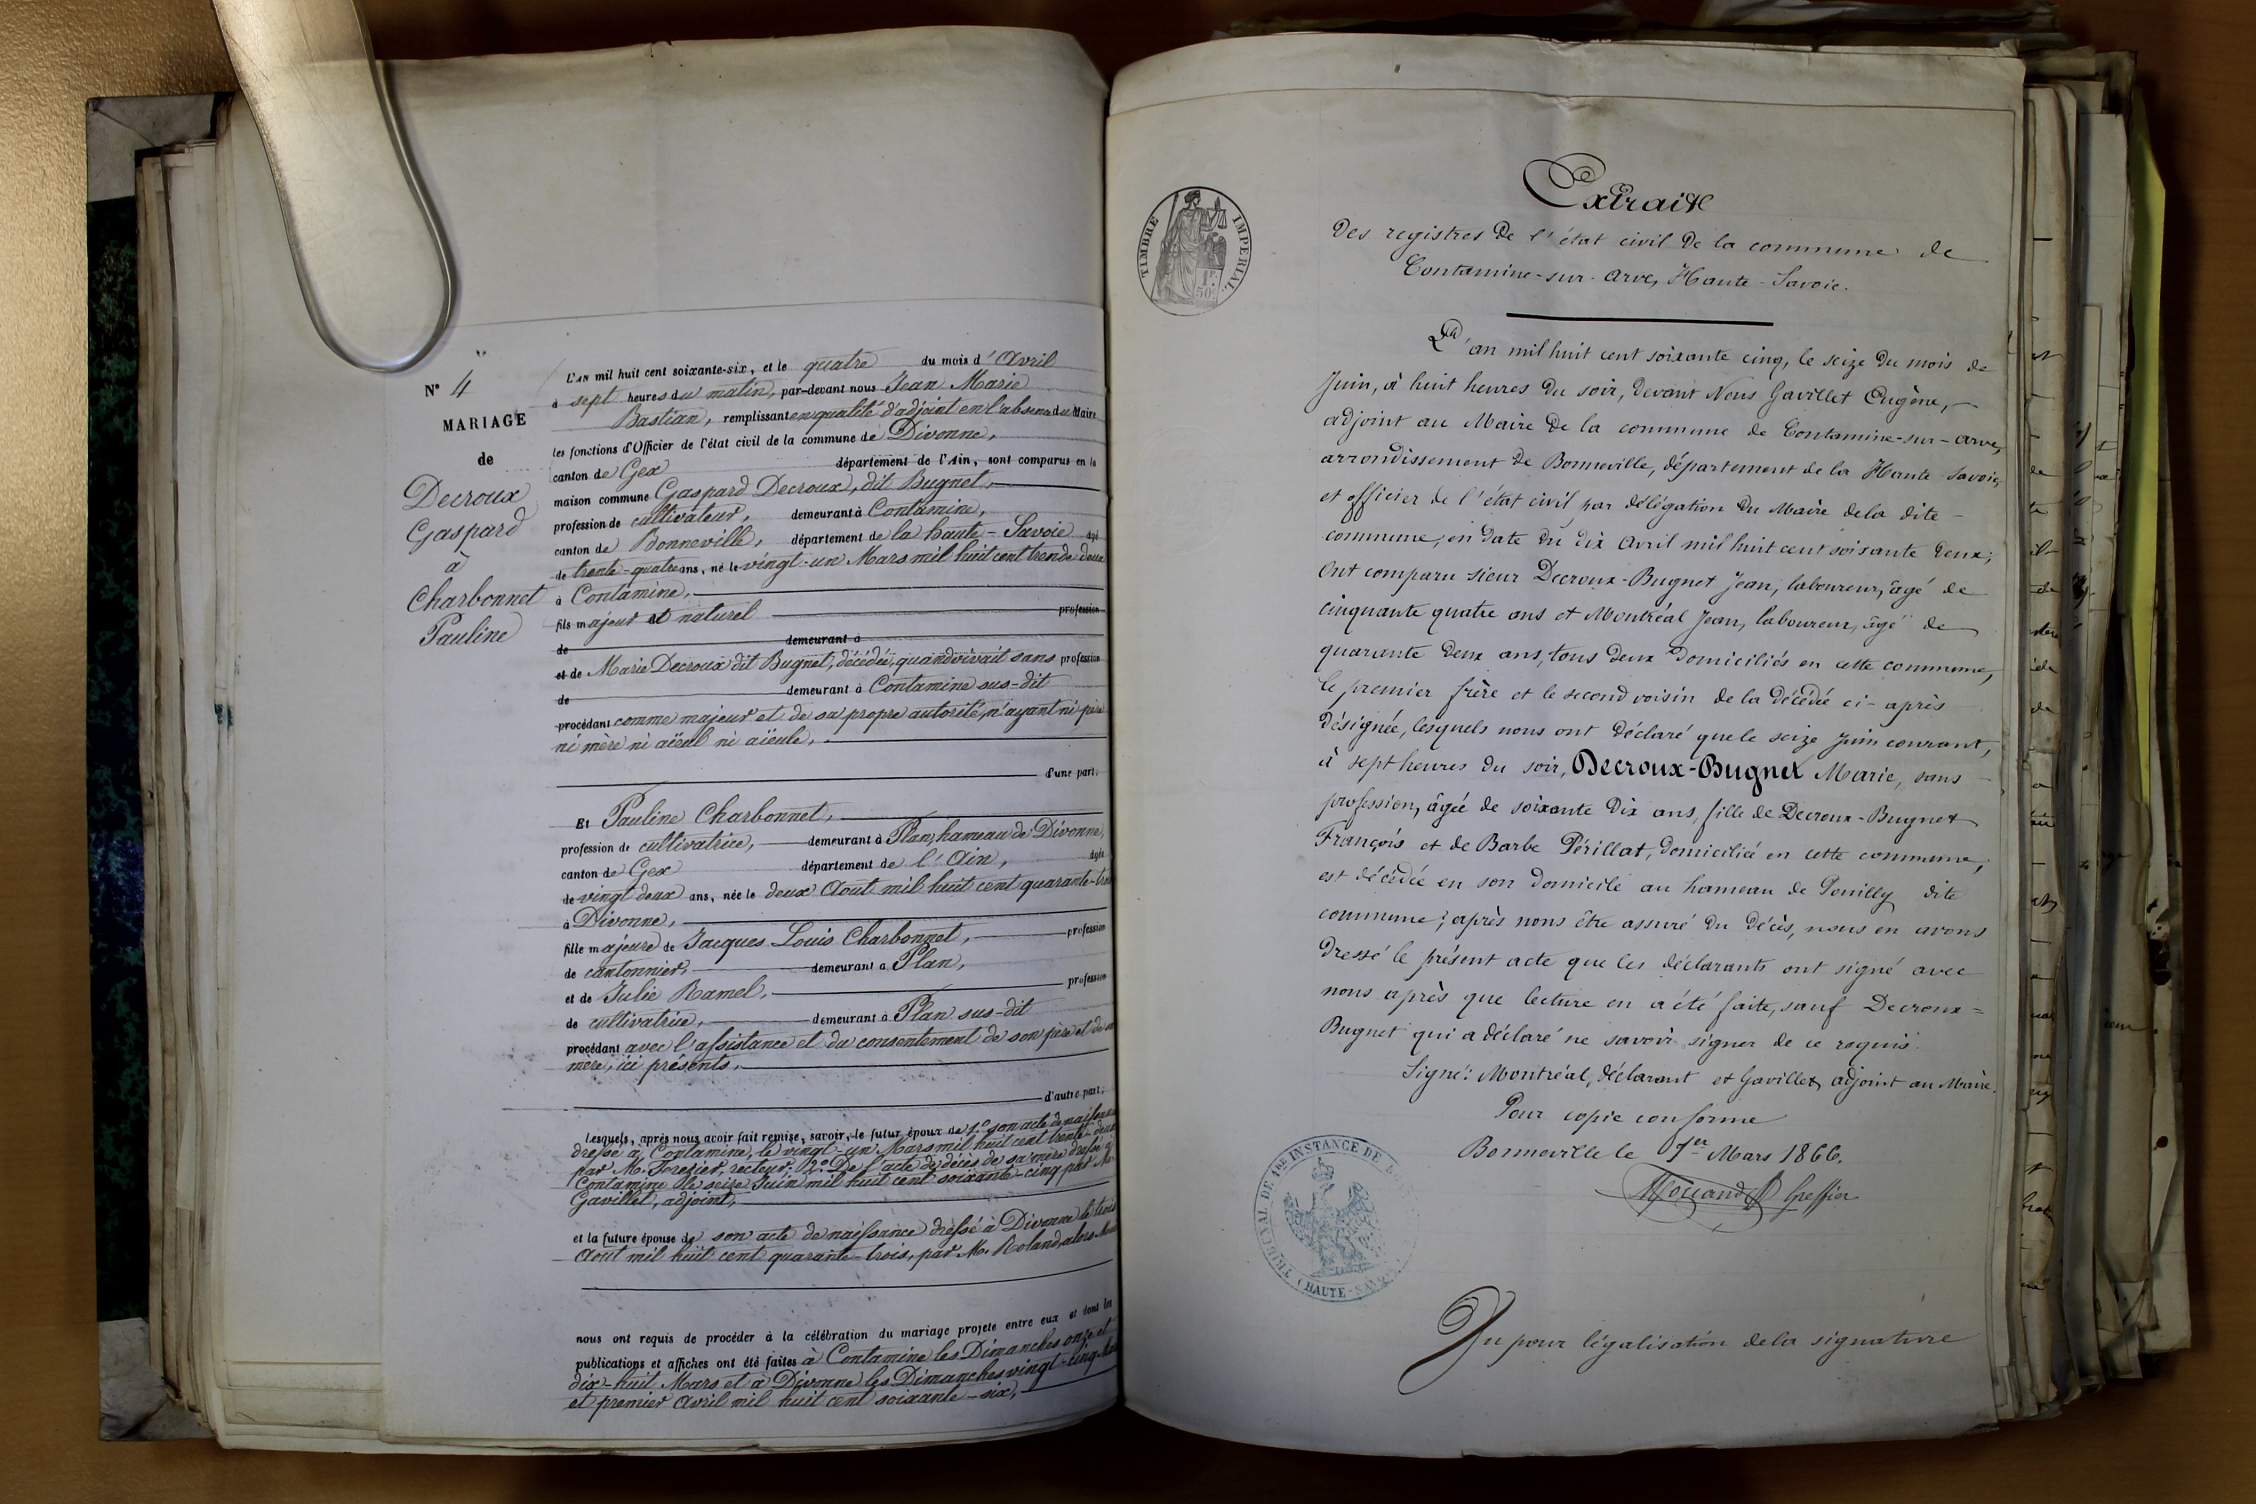 N° 4
MARIAGE
de
Decroux
Gaspard
à
Charbonnet
Pauline
L'AN mil huit cent soixante-six, et le quatre du mois d'Avril
à sept heures du matin, par-devant nous Jean Marie
Bastian, remplissant en qualité d'adjoint en l'absence du Maire
les fonctions d'Officier de l'état civil de la commune de Divonne,
canton de Gex département de l'Ain, sont comparus en la
maison commune Gaspard Decroux, dit Bugnet,
profession de cultivateur, demeurant à Contamine,
canton de Bonneville, département de la haute-Savoie âgé
de trente-quatre ans, né le vingt-un Mars mil huit cent trente deux
à Contamine,
fils majeur et naturel profession
de demeurant à
et de Marie Decroux dit Bugnet, décédée, quand vivait sans profession
de demeurant à Contamine sus-dit
procédant comme majeur et de sa propre autorité, n'ayant ni père
ni mère ni aïeul ni aïeule,
d'une part.
Et Pauline Charbonnet,
profession de cultivatrice, demeurant à Plan, hameau de Divonne,
canton de Gex département de l'Ain, âgée
de vingt deux ans, née le deux Aout mil huit cent quarante-trois
à Divonne,
fille majeure de Jacques Louis Charbonnet, profession
de cantonnier, demeurant à Plan,
et de Julie Ramel, profession
de cultivatrice, demeurant à Plan sus-dit
procédant avec l'assistance et du consentement de son père et de sa
mère, ici présents,
d'autre part.
Lesquels, après nous avoir fait remise, savoir, le futur époux de 1.° son acte de naissance
dressé à Contamine, le vingt-un Mars mil huit cent trente-deux
par M. recteur; 2.° De l'acte de décès de sa mère dressé à
Contamine le seize Juin mil huit cent soixante-cinq par M.
Gavillet, adjoint,
et la future épouse de son acte de naissance dressé à Divonne le trois
Aout mil huit cent quarante-trois, par M. Roland, alors Maire
nous ont requis de procéder à la célébration du mariage projeté entre eux et dont les
publications et affiches ont été faites à Contamine les Dimanches onze et
dix-huit Mars et à Divonne les Dimanches vingt-cinq Mars
et premier Avril mil huit cent soixante-six,
TIMBRE IMPERIAL
1F.
50c
Extrait
Des registres de l'état civil de la commune de
Contamine-sur-Arve, Haute-Savoie.
L'an mil huit cent soixante cinq, le seize du mois de
Juin, à huit heures du soir, devant Nous Gavillet Eugène,
adjoint au Maire de la commune de Contamine-sur-Arve,
arrondissement de Bonneville, département de la Haute Savoie,
et officier de l'état civil par délégation du Maire de la dite
commune, en date du dix Avril mil huit cent soixante deux;
Ont comparu sieur Decroux-Bugnet Jean, laboureur, âgé de
cinquante quatre ans et Montréal Jean, laboureur, âgé de
quarante deux ans, tous deux domiciliés en cette commune,
le premier frère et le second voisin de la décédée ci-après
désignée, lesquels nous ont déclaré que le seize Juin courant,
à sept heures du soir, Decroux-Bugnet Marie, sans
profession, âgée de soixante dix ans, fille de Decroux-Bugnet
François et de Barbe Périllat, domiciliée en cette commune,
est décédée en son domicile au hameau de Pouilly dite
commune; après nous être assuré du décès, nous en avons
dressé le présent acte que les déclarants ont signé avec
nous après que lecture en a été faite, sauf Decroux=
Bugnet qui a déclaré ne savoir signer de ce requis.
Signé: Montréal, déclarant et Gavillet, adjoint au Maire.
Pour copie conforme
Bonneville le 1er Mars 1866.
Greffier
TRIBUNAL DE 1RE INSTANCE DE
(HAUTE-SAVOIE)
Vu pour légalisation de la signature